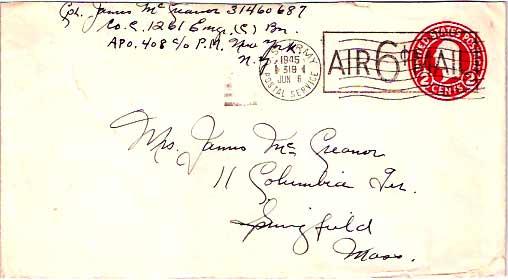 Cpl. James McGreanor 31460687
Co. C, 1261 Engr. (C) Bn.
APO. 408 c/o P.M. New York
N.Y.
U.S. ARMY
1945
319
JUN 6
POSTAL SERVICE
AIR 6¢ MAIL
UNITED STATES POSTAGE
2 CENTS 2
Mrs. James McGreanor
11 Columbia Ter.
Springfield
Mass.